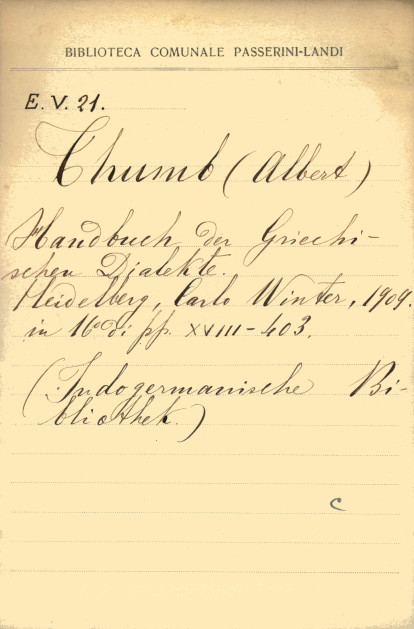 BIBLIOTECA COMUNALE PASSERINI-LANDI
E. V. 21.
Thumb (Albert)
Handbuch der Griechi-
schen Djalekte.
Heidelberg, Carlo Winter, 1909.
in 16° di pp. XVIII-403.
(Indogermanische Bi-
bliothek.)
c